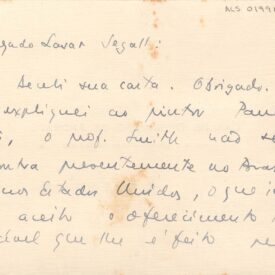 ALS. 01991
gado Lasar Segall:
Recebi sua carta. Obrigado.
expliquei ao pintor
, o prof. Smith não se
ontra presentemente no Bras
nos Estados Unidos, o que
aceito o oferecimento
que lhe é feito pe